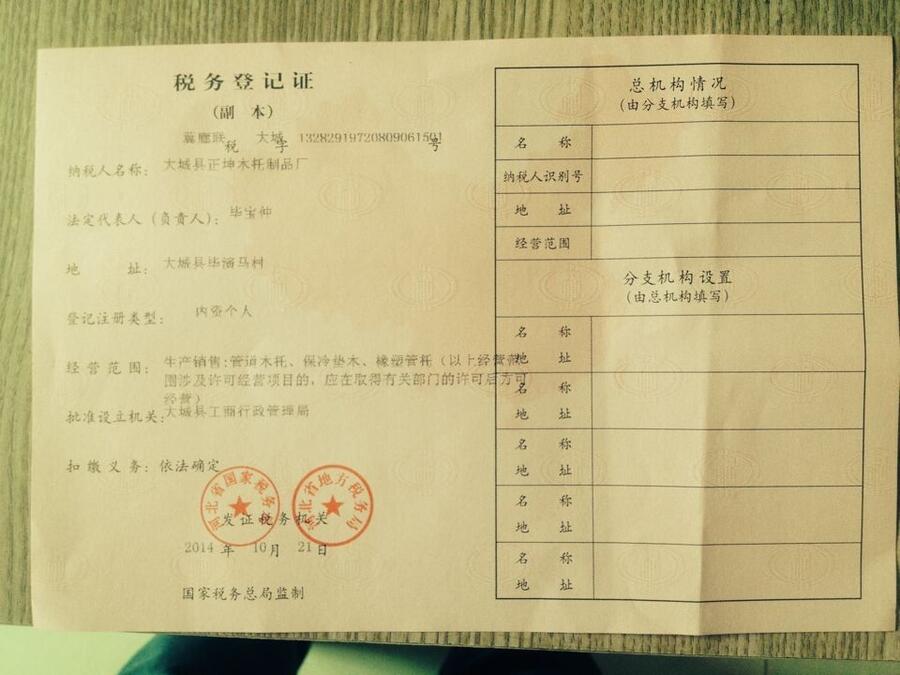 税务登记证
(副 本)
冀廊联税 大城字 13282919720809061501号
纳税人名称: 大城县正坤木托制品厂
法定代表人(负责人): 毕宝仲
地 址: 大城县毕演马村
登记注册类型: 内资个人
经营范围: 生产销售:管道木托、保冷垫木、橡塑管托(以上经营范
围涉及许可经营项目的,应在取得有关部门的许可后方可
经营)
批准设立机关: 大城县工商行政管理局
扣缴义务: 依法确定
河北省国家税务局
河北省地方税务局
发证税务机关
2014 年 10 月 21 日
国家税务总局监制
总机构情况
(由分支机构填写)
名 称
纳税人识别号
地 址
经营范围
分支机构设置
(由总机构填写)
名 称
地 址
名 称
地 址
名 称
地 址
名 称
地 址
名 称
地 址